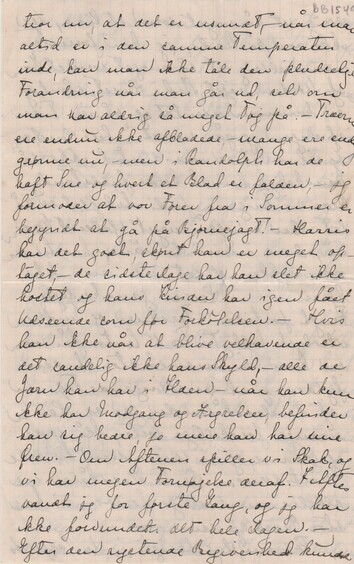 BB1540
tror nu, at det er usundt, når man
altid er i den samme Temperatur
inde, kan man ikke tåle den pludselige
Forandring når man går ud, selv om
man har aldrig så meget Tøj på. – Træerne
ere endnu ikke afbladede – mange ere end
grønne nu, – men i Randolph har de
haft Sne og hvert et Blad er falden, – jeg
formoder at vor Foren fra i Sommer er
begyndt at gå på Bjørnejagt. – Harris
har det godt, skønt han er meget op-
taget, – de sidste Dage har han slet ikke
hostet og hans Kinder har igen fået
Udseende som før Forkölelsen. – Hvis
han ikke når at blive velhavende er
det sandelig ikke hans Skyld, – alle de
Jærn han har i Ilden – når han kun
ikke har Modgang og Ærgrelser befinder
han sig bedre, jo mere han har sine
– Om Aftenen spiller vi Skak, og
vi har megen Fornøjelse deraf. I Aftes
vandt jeg for første Gang, og jeg har
ikke forvundet det hele Dagen. –
Efter den nyetende Begivenhed kunde